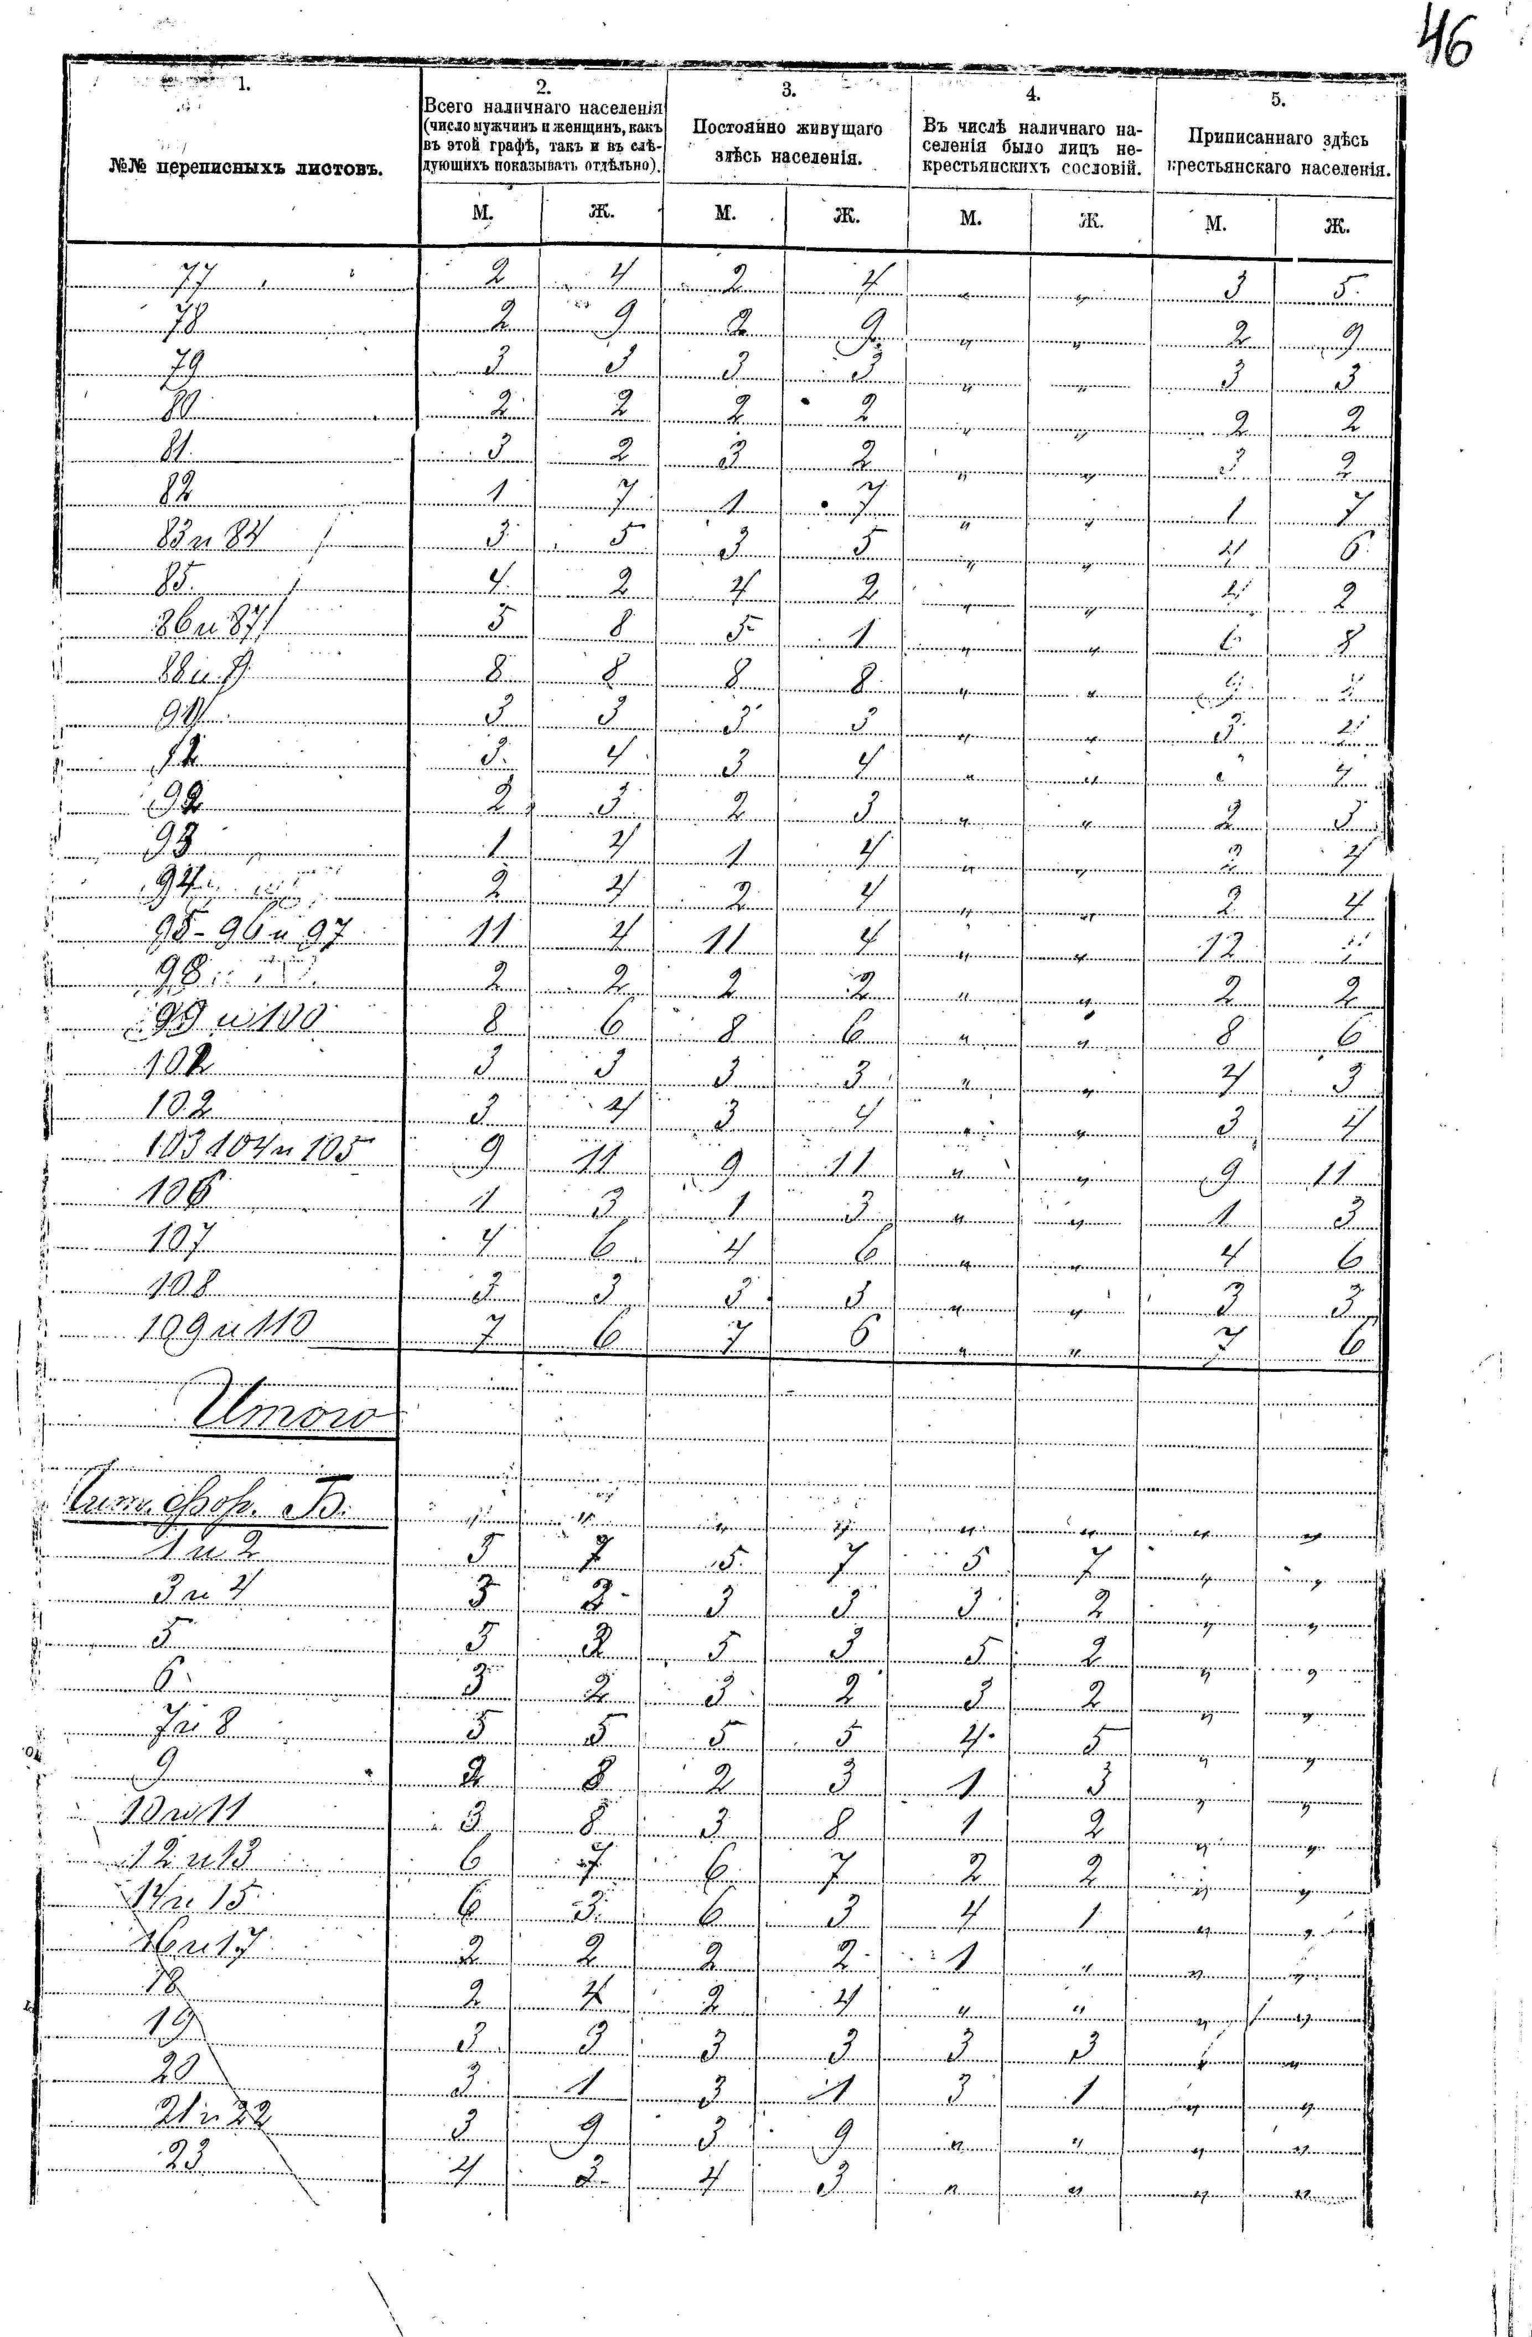 46
1. 2. 3. 4. 5.
№№ переписныхъ листовъ.
Всего наличнаго населенія
(число мужчинъ и женщинъ, какъ
въ этой графѣ, такъ и въ слѣ-
дующихъ показывать отдѣльно).
Постоянно живущаго
здѣсь населенія.
Въ числѣ наличнаго на-
селенія было лицъ не-
крестьянскихъ сословій.
Приписаннаго здѣсь
крестьянскаго населенія.
М. Ж. М. Ж. М. Ж. М. Ж.
77 2 4 2 4 " " 3 5
78 2 9 2 9 " " 2 9
79 3 3 3 3 " " 3 3
80 2 2 2 2 " " 2 2
81 3 2 3 2 " " 3 2
82 1 7 1 7 " " 1 7
83 и 84 3 5 3 5 " " 4 6
85 4 2 4 2 " " 4 2
86 и 87 5 8 5 1 " " 8
8 8 8 8 " "
3 3 3 3 " " 3 4
3 4 3 4 " "
92 2 3 2 3 " " 2 3
93 1 4 1 4 " " 2 4
94 2 4 2 4 " " 2 4
95-96 и 97 11 4 11 4 " " 12
98 2 2 2 2 " " 2 2
99 и 100 8 6 8 6 " " 8 6
101 3 3 3 3 " " 4 3
102 3 4 3 4 " " 3 4
103 104 и 105 9 11 9 11 " " 9 11
106 1 3 1 3 " " 1 3
107 4 6 4 6 " " 4 6
108 3 3 3 3 " " 3 3
109 и 110 7 6 7 6 " " 7 6
Итого
Б. " " " " " " " "
1 и 2 5 7 5 7 5 7 " "
3 и 4 3 3 3 3 3 2 " "
5 5 2 5 3 5 2 " "
6 3 2 3 2 3 2 " "
7 и 8 5 5 5 5 4 5 " "
9 2 8 2 3 1 3 " "
10 и 11 3 8 3 8 1 2 " "
12 и 13 6 7 6 7 2 2 " "
14 и 15 6 3 6 3 4 1 " "
16 и 17 2 2 2 2 1 " " "
18 2 4 2 4 " " " "
19 3 3 3 3 3 3 " "
20 3 1 3 1 3 1 " "
21 и 22 3 9 3 9 " " " "
23 4 3 4 3 " " " "